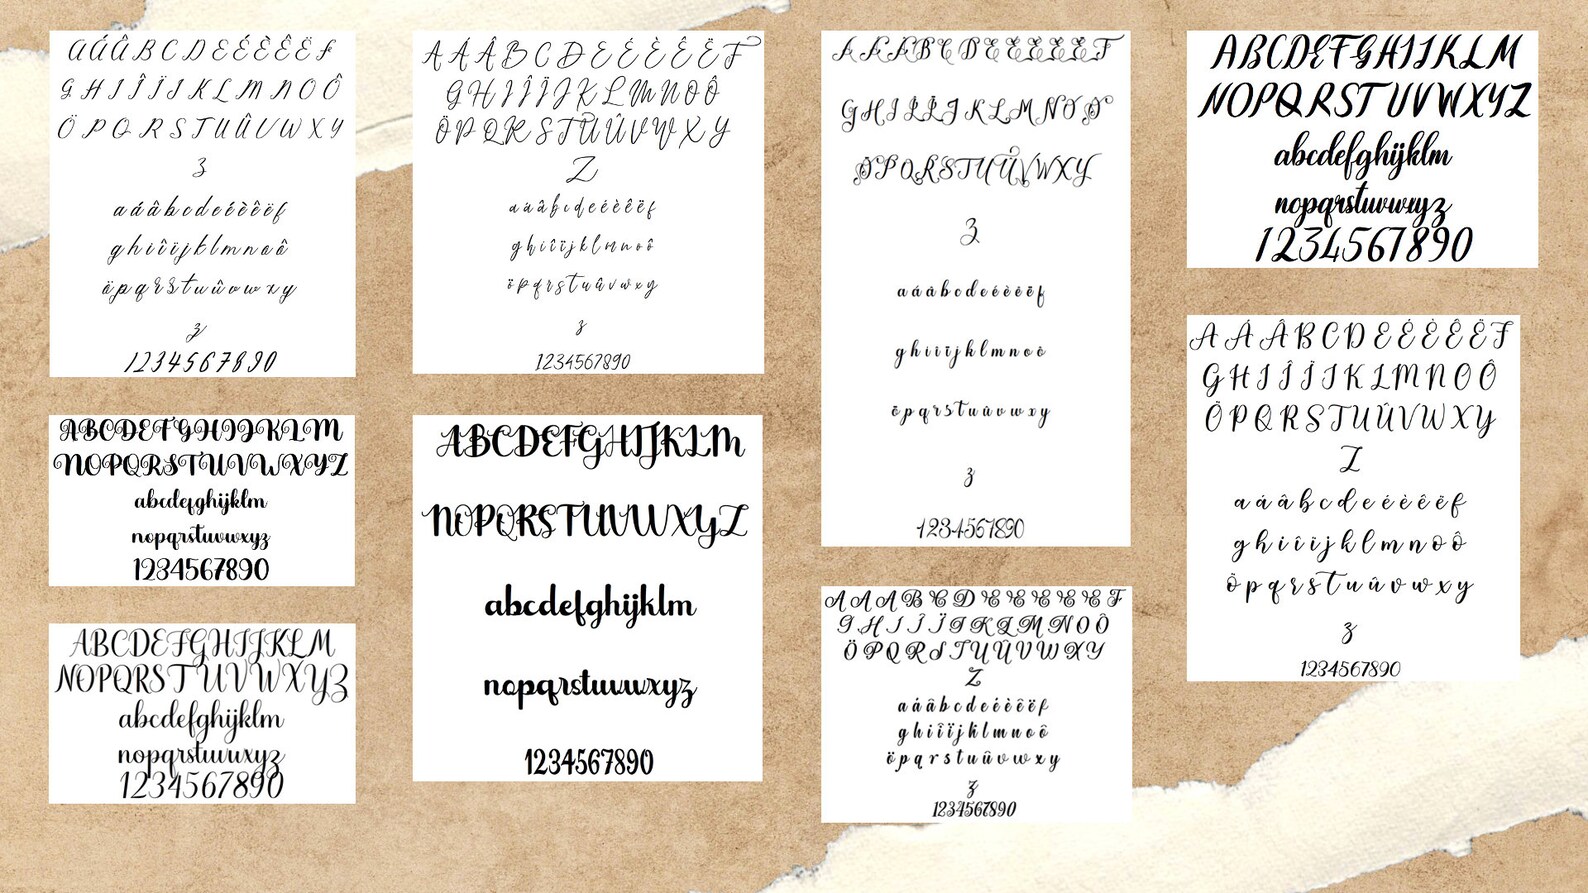 A Á Â B C D E É È Ê Ë F
G H I Î Ï J K L M N O Ô
Ö P Q R S T U Û V W X Y
Z
a á â b c d e é è ê ë f
g h i î ï j k l m n o ô
ö p q r s t u û v w x y
z
1 2 3 4 5 6 7 8 9 0
ABCDEFGHIJKLM
NOPQRSTUVWXYZ
abcdefghijklm
nopqrstuvwxyz
1234567890
ABCDEFGHIJKLM
NOPQRSTUVWXYZ
abcdefghijklm
nopqrstuvwxyz
1234567890
A Á Â B C D E É È Ê Ë F
G H I Î Ï J K L M N O Ô
Ö P Q R S T U Û V W X Y
Z
a á â b c d e é è ê ë f
g h i î ï j k l m n o ô
ö p q r s t u û v w x y
z
1234567890
ABCDEFGHIJKLM
NOPQRSTUVWXYZ
abcdefghijklm
nopqrstuvwxyz
1234567890
A Á Â B C D E É È Ê Ë F
G H I Î Ï J K L M N O Ô
Ö P Q R S T U Û V W X Y
Z
a á â b c d e é è ê ë f
g h i î ï j k l m n o ô
ö p q r s t u û v w x y
z
1234567890
A Á Â B C D E É È Ê Ë F
G H I Î Ï J K L M N O Ô
Ö P Q R S T U Û V W X Y
Z
a á â b c d e é è ê ë f
g h i î ï j k l m n o ô
ö p q r s t u û v w x y
z
1234567890
ABCDEFGHIJKLM
NOPQRSTUVWXYZ
abcdefghijklm
nopqrstuvwxyz
1234567890
A Á Â B C D E É È Ê Ë F
G H I Î Ï J K L M N O Ô
Ö P Q R S T U Û V W X Y
Z
a á â b c d e é è ê ë f
g h i î ï j k l m n o ô
ö p q r s t u û v w x y
z
1234567890